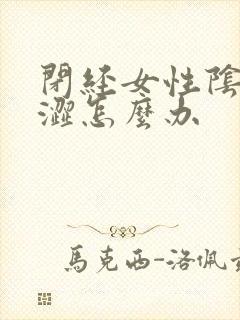 閉經女性陰
澀怎麼办
馬克西-洛佩